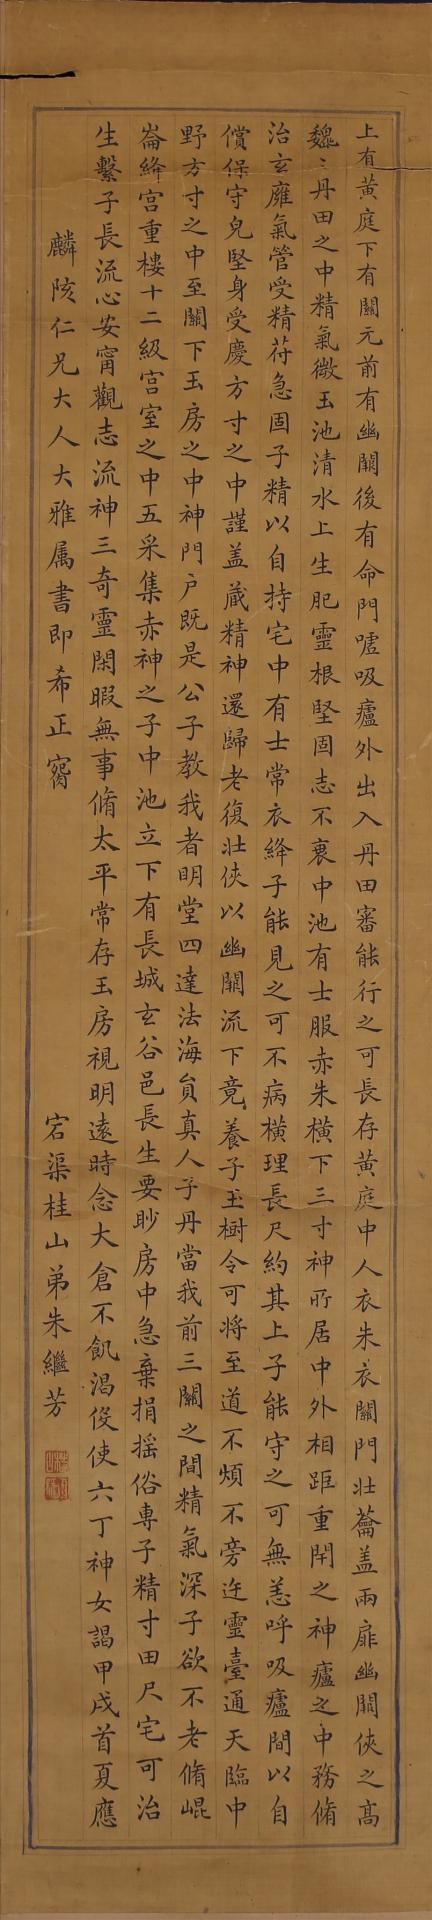 上有黃庭下有關元前有幽闕後有命門噓吸廬外出入丹田審能行之可長存黃庭中人衣朱衣關門壯蘥盖兩扉幽闕俠之髙
魏〻丹田之中精氣微玉池清水上生肥靈根堅固志不衰中池有士服赤朱橫下三寸神所居中外相距重閇之神廬之中務脩
治玄廱氣管受精苻急固子精以自持宅中有士常衣絳子能見之可不病橫理長尺約其上子能守之可無恙呼吸廬間以自
償保守皃堅身受慶方寸之中謹盖藏精神還歸老復壯俠以幽闕流下竟養子玉樹令可将至道不煩不旁迕靈臺通天臨中
野方寸之中至關下玉房之中神門户既是公子教我者明堂四達法海負真人子丹當我前三關之間精氣深子欲不老脩崐
崙絳宫重樓十二級宫室之中五采集赤神之子中池立下有長城玄谷邑長生要眇房中急棄捐揺俗専子精寸田尺宅可治
生繫子長流心安甯觀志流神三奇靈閑暇無事脩太平常存玉房視明遠時念大倉不飢渴伇使六丁神女謁甲戌首夏應
麟陔仁兄大人大雅属書即希正 宕渠桂山弟朱繼芳